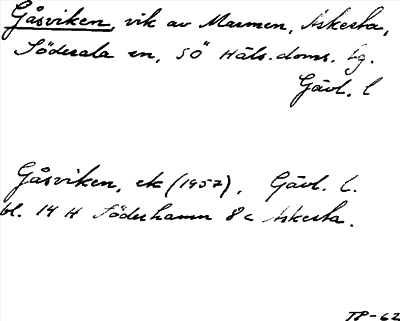 Gåsviken, vik av Marmen, Askesta,
Söderala sn, SÖ Häls. doms. tg.
Gävl. l
Gåsviken, ek (1957), Gävl. l.
bl. 14 H Söderhamn 8 c Askesta.
TP-62